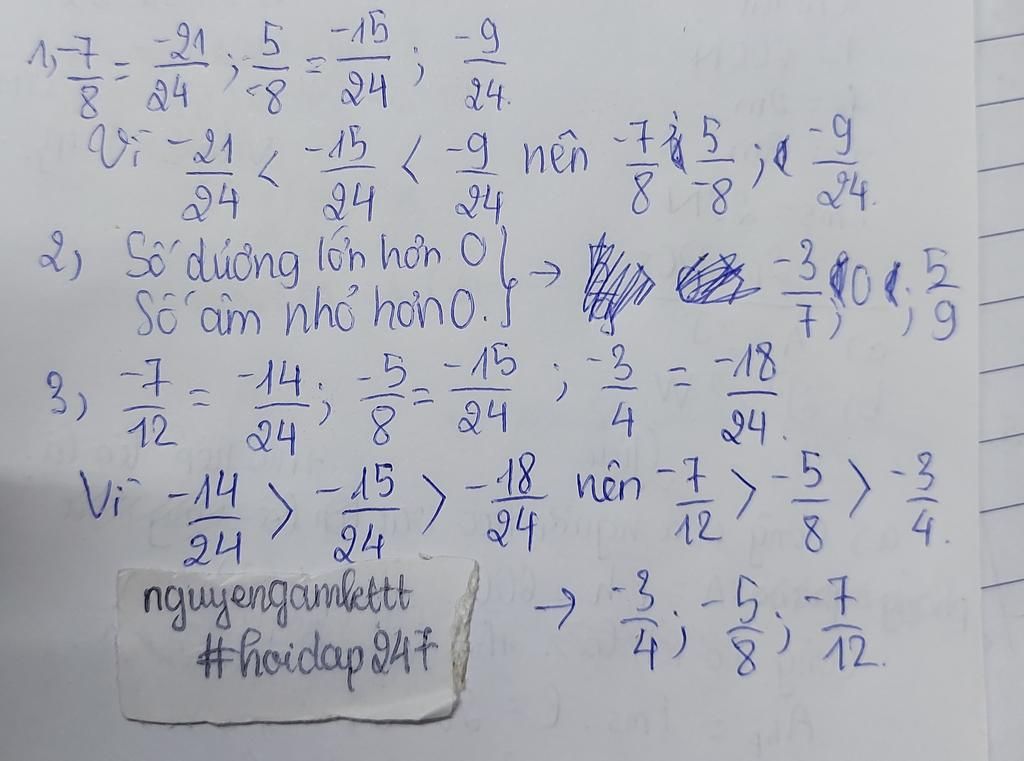 1, -7/8 = -21/24 ; 5/-8 = -15/24 ; -9/24.
Vì -21/24 < -15/24 < -9/24 nên -7/8 ; 5/-8 ; -9/24.
2) Số dương lớn hơn 0 } → -3/7 ; 0 ; 5/9
Số âm nhỏ hơn 0. }
3) -7/12 = -14/24 ; -5/8 = -15/24 ; -3/4 = -18/24.
Vì -14/24 > -15/24 > -18/24 nên -7/12 > -5/8 > -3/4.
→ -3/4 ; -5/8 ; -7/12.
nguyengamkttt
#hoidap247